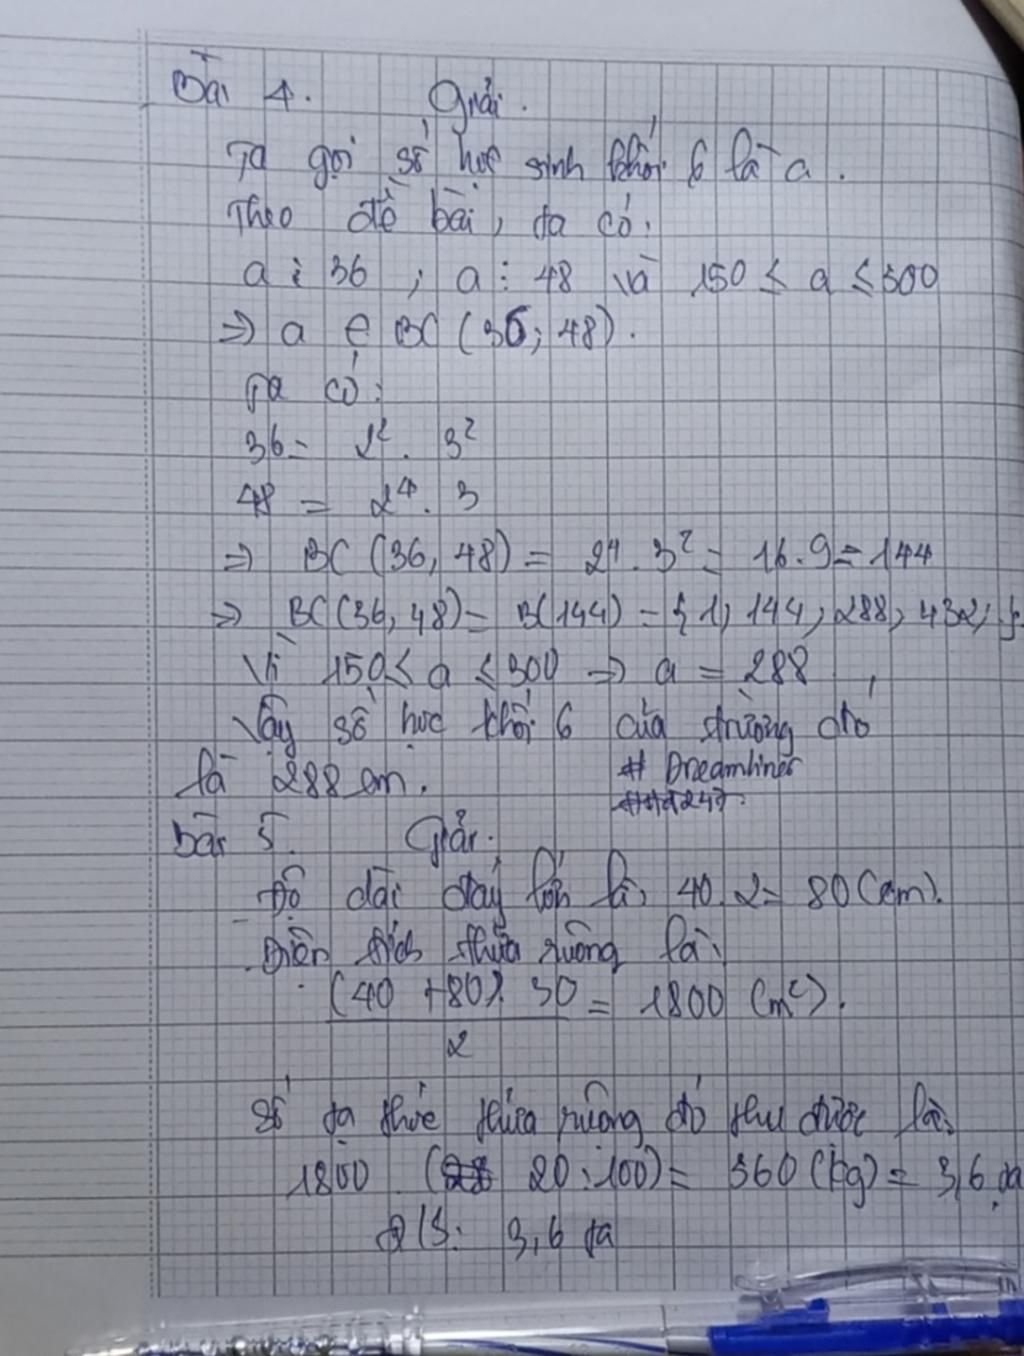 Bài 4. Giải.
Ta gọi số học sinh khối 6 là a.
Theo đề bài, ta có:
a ⋮ 36 ; a ⋮ 48 và 150 ≤ a ≤ 300
=> a ∈ BC (36; 48).
Ta có:
36 = 2². 3²
48 = 2⁴. 3
=> BC (36, 48) = 2⁴. 3² = 16.9 = 144
=> BC(36, 48) = B(144) = {1, 144, 288, 432, }.
Vì 150 ≤ a ≤ 300 => a = 288
Vậy số học khối 6 của trường đó
là 288 em.
# Dreamliner
Bài 5. Giải.
Độ dài đáy lớn là: 40.2 = 80 (cm).
Diện tích thửa ruộng là:
(40 + 80). 30 = 1800 (m²).
2
Số tạ thóc thửa ruộng đó thu được là:
1800 . ( 20 : 100) = 360 (kg) = 3,6 tạ
Đ/S: 3,6 tạ